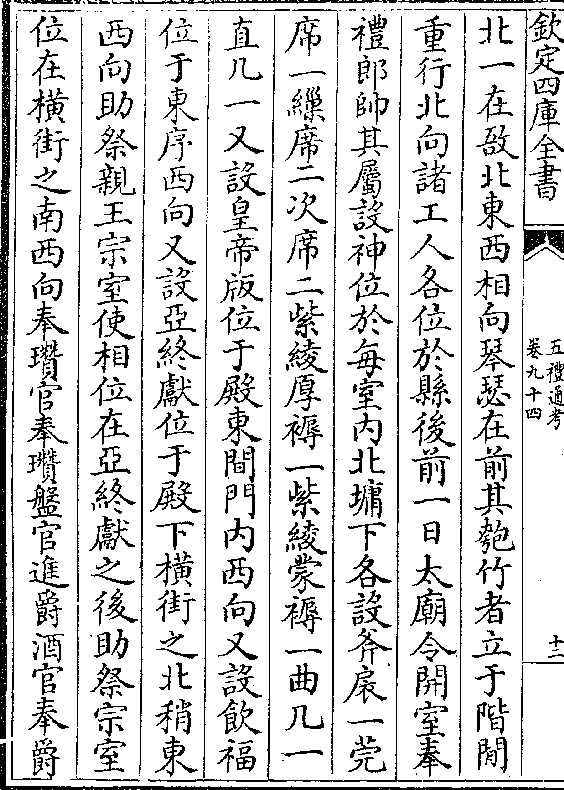 欽定四庫全書
五禮通考
卷九十四
十二
北一在敔北東西相向琴瑟在前其匏竹者立于階間
重行北向諸工人各位於縣後前一日太廟令開室奉
禮郎帥其屬設神位於每室内北墉下各設斧扆一莞
席一繅席二次席二紫綾厚褥一紫綾蒙褥一曲几一
直几一又設皇帝版位于殿東間門内西向又設飲福
位于東序西向又設亞終獻位于殿下横街之北稍東
西向助祭親王宗室使相位在亞終獻之後助祭宗室
位在横街之南西向奉瓚官奉瓚盤官進爵酒官奉爵